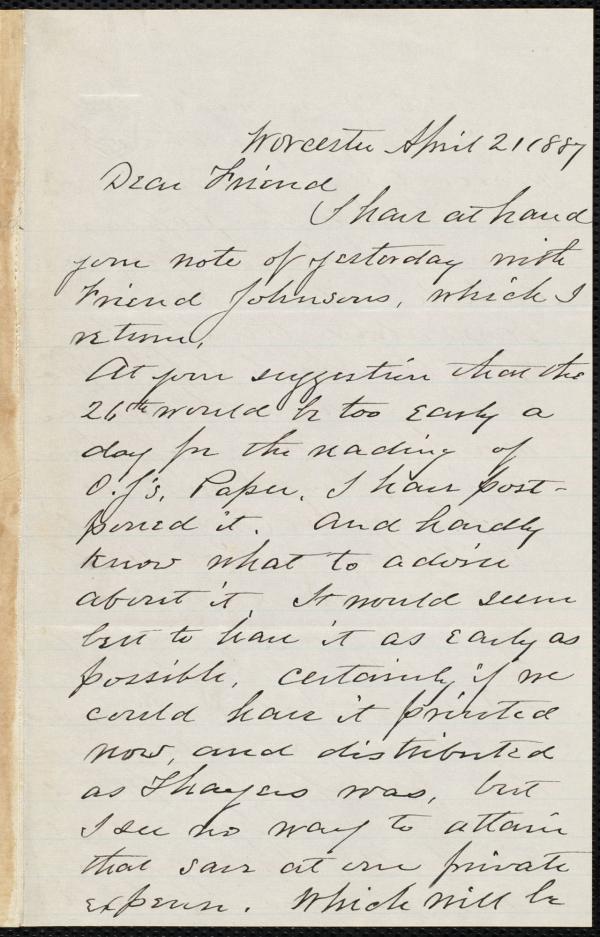 Worcester April 21 1887
Dear Friend
I have at hand
your note of yesterday with
Friend Johnsons, which I
return.
At your suggestion that the
26th would be too early a
day for the reading of
O.J's, Paper, I have post-
poned it. And hardly
know what to advise
about it. It would seem
best to have it as early as
possible, certainly if we
could have it printed
now, and distributed
as Thayers was, but
I see no way to attain
that save at our private
expense. Which will be